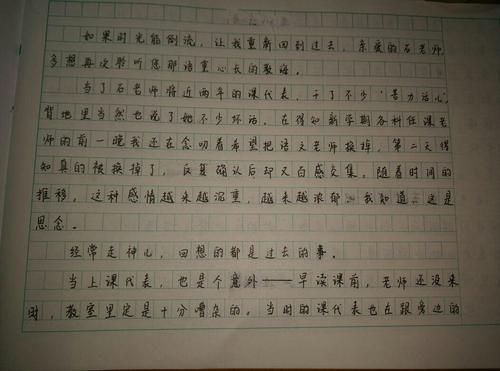 如果时光能倒流，让我重新回到过去，亲爱的石老师，
多想再次聆听您那语重心长的教诲。
当了石老师将近两年的课代表，干了不少“苦力活儿”，
背地里当然也说了她不少坏话。在得知新学期各科任课老
师的前一晚我还在念叨着希望把语文老师换掉，第二天得
知真的被换掉了，反复确认后却又百感交集。随着时间的
推移，这种感情越来越沉重，越来越浓郁。我知道，这是
思念。
经常走神儿，回想的都是过去的事。
当上课代表，也是个意外——早读课前，老师还没来
时，教室里定是十分嘈杂的。当时的课代表也在跟旁边的